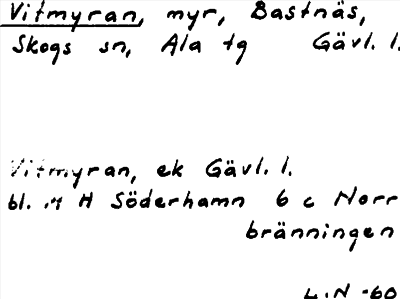 Vitmyran, myr, Bastnäs,
Skogs sn, Ala tg Gävl. l.
Vitmyran, ek Gävl. l.
bl. 14 H Söderhamn 6 c Norr
bränningen
L.N -60